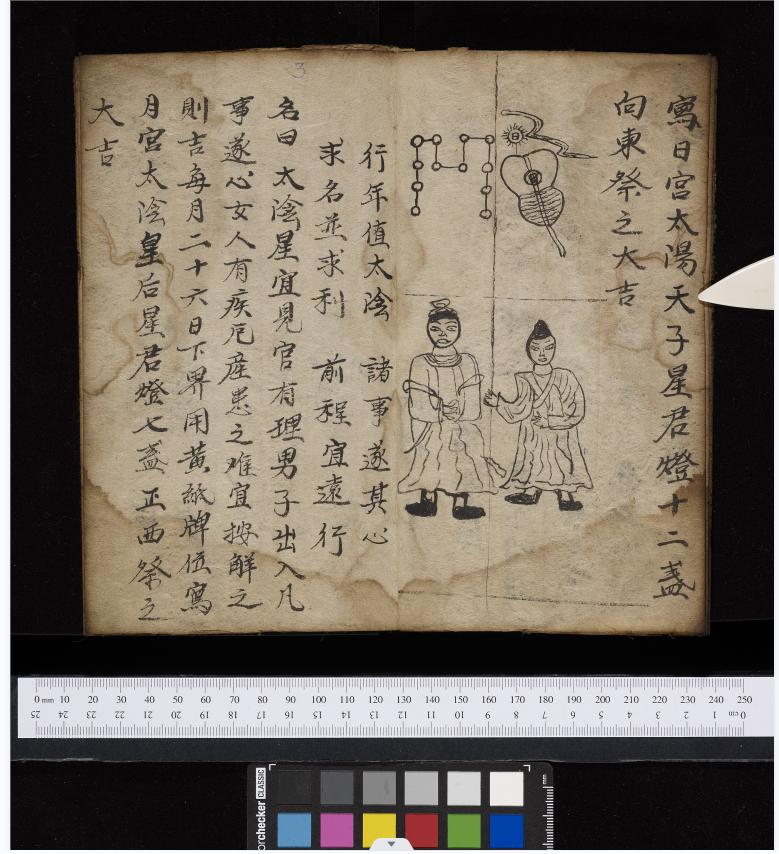 寫日宮太陽天子星君燈十二盞
向東祭之大吉
日
行年值太陰　諸事遂其心
求名並求利　前程宜遠行
3
名曰太陰星宜見官有理男子出入凡
事遂心女人有疾厄產患之难宜按解之
則吉每月二十六日下界用黃紙牌位寫
月宮太陰皇后星君燈七盞正西祭之
大吉
0 mm 10 20 30 40 50 60 70 80 90 100 110 120 130 140 150 160 170 180 190 200 210 220 230 240 250
25 24 23 22 21 20 19 18 17 16 15 14 13 12 11 10 9 8 7 6 5 4 3 2 1 cm 0
orchecker CLASSIC
mm